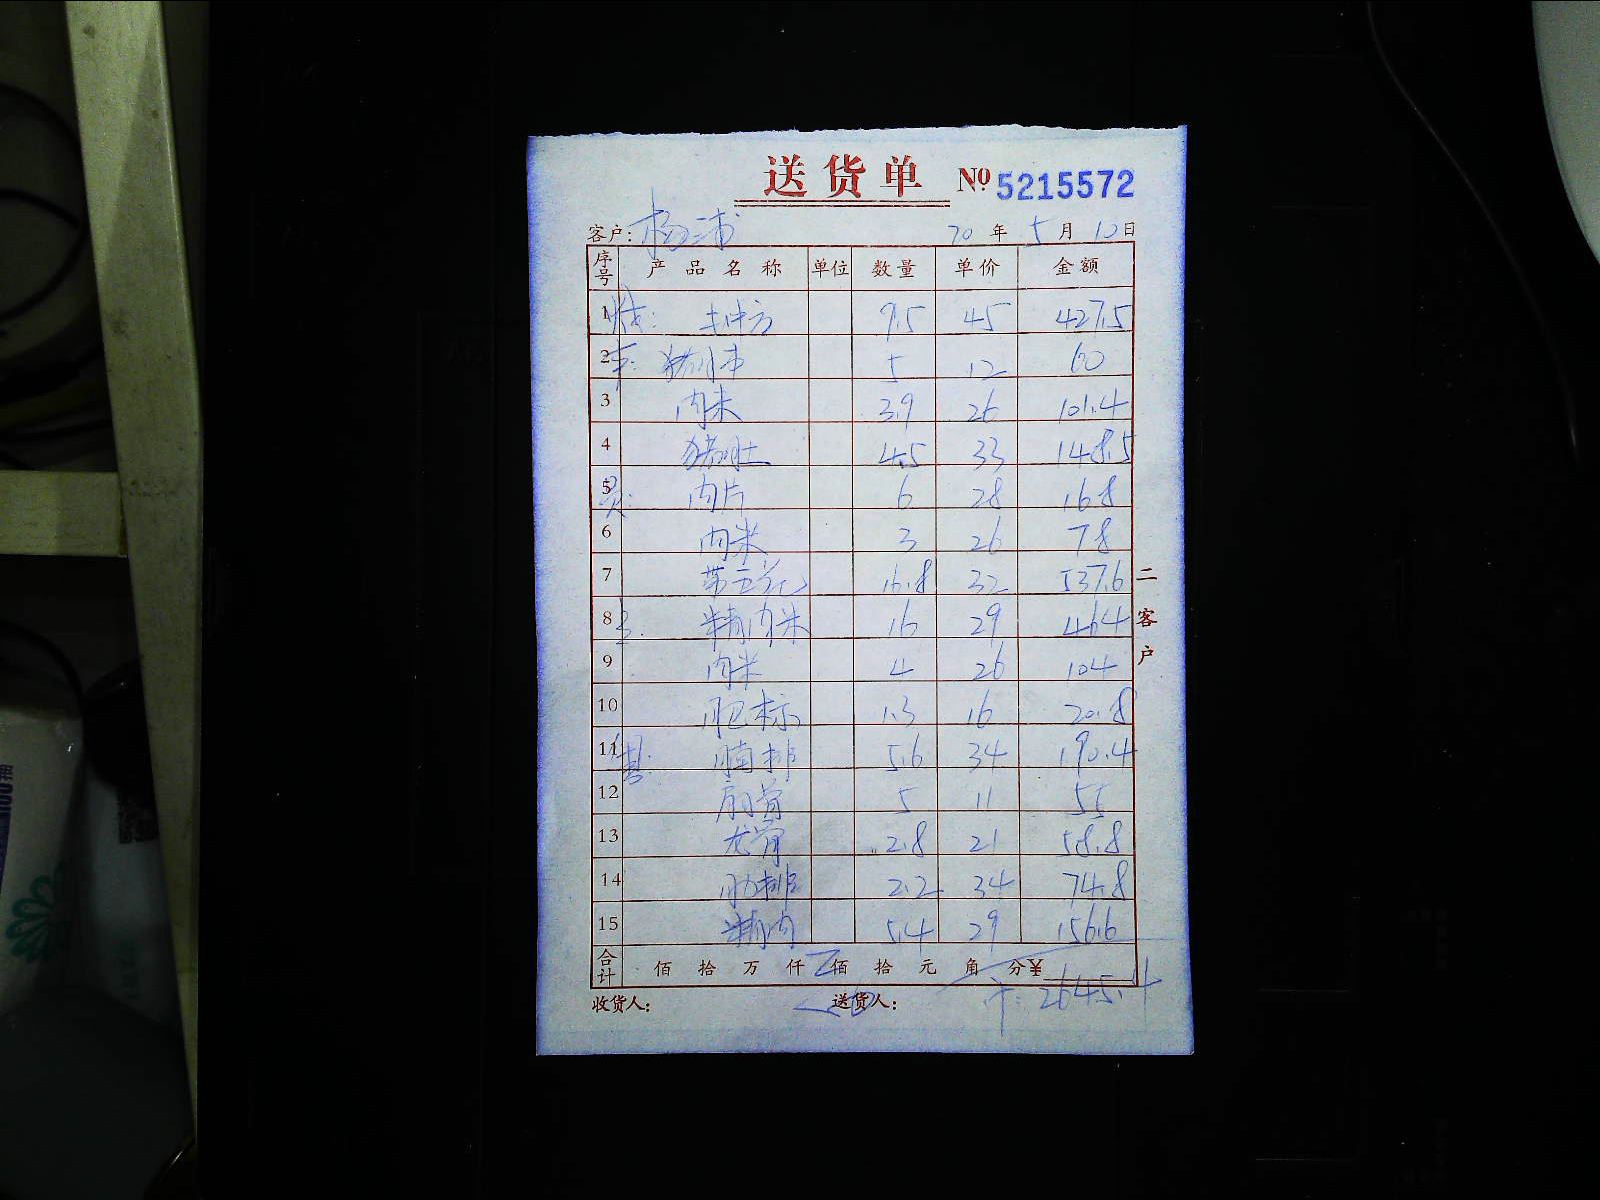 送货单 № 5215572
客户: 杨浦 20年 5月 12日
序号 产品名称 单位 数量 单价 金额
1 9.5 45 427.5
2 5 12 60
3 肉末 3.9 26 101.4
4 猪肚 4.5 33 148.5
5 肉片 6 28 168
6 肉米 3 26 78
7 16.8 32 537.6
8 精肉米 16 29 464
9 肉米 4 26 104
10 肥标 1.3 16 20.8
11 腩排 5.6 34 190.4
12 扇骨 5 11 55
13 龙骨 2.8 21 58.8
14 肋排 2.2 34 74.8
15 精肉 5.4 29 156.6
合计 佰 拾 万 仟 佰 拾 元 角 分¥
2645.4
收货人: 送货人:
二客户